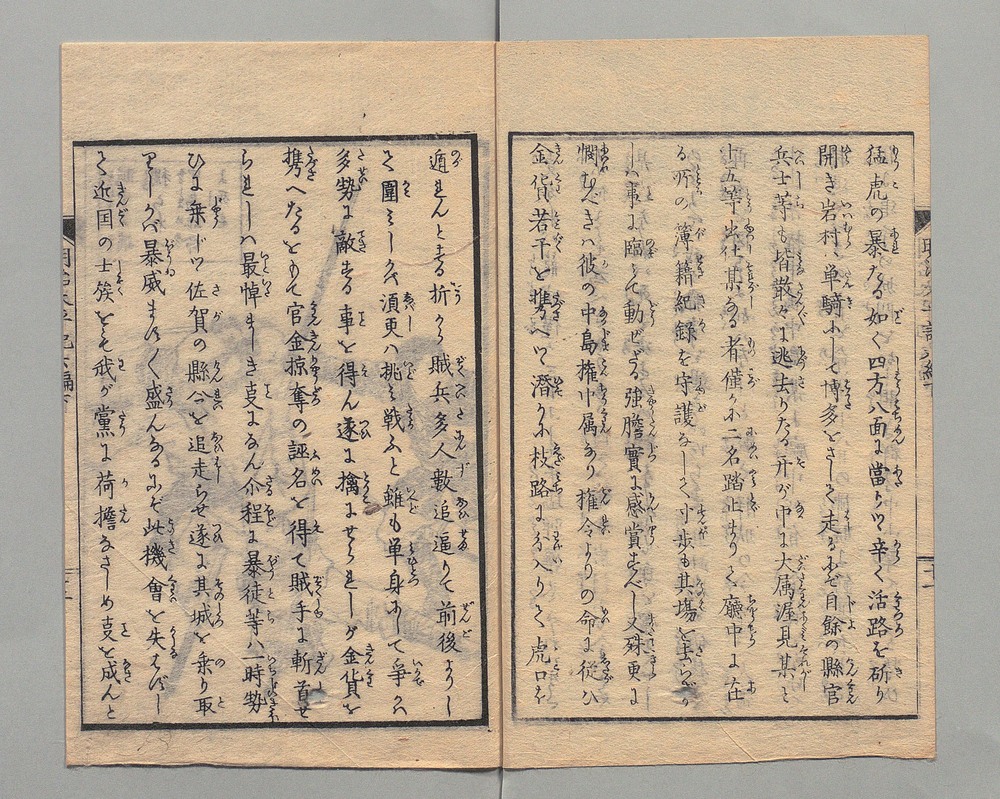 猛虎の暴たる如く四方八面に當りツヽ辛く活路を斫り
開き岩村ハ単騎にして博多をさして走るにぞ自餘の縣官
兵士等も皆散々に逃去りたる开が中に大属渥見某と
十五等出仕某なる者僅かに二名踏止まりて廳中に在
る所の簿籍紀録を守護なして寸歩も其塲を去らざり
しハ事に臨て動ぜざる強膽實に感賞すべし又殊更に
憫むべきハ彼の中島権中属なり権令よりの命に従ひ
金貨若干を携へツヽ潜かに枝路に分入りて虎口を
遁れんとする折から賊兵多人數追逼りて前後よりし
て圍みしかバ須更ハ挑み戦ふと雖も単身にして争かハ
多勢に敵する事を得ん遂に擒にせられしが金貨を
携へたるをもて官金掠奪の誣名を得て賊手に斬首せ
られしハ最悼ましき支になん尒程に暴徒等ハ時勢
ひに乗じツヽ佐賀の縣令を追走らせ遂に其城を乗り取
りしかバ暴威ますます盛んなるにぞ此機會を失はずし
て近国の士族をも我が黨に荷擔なさしめ支を成んと